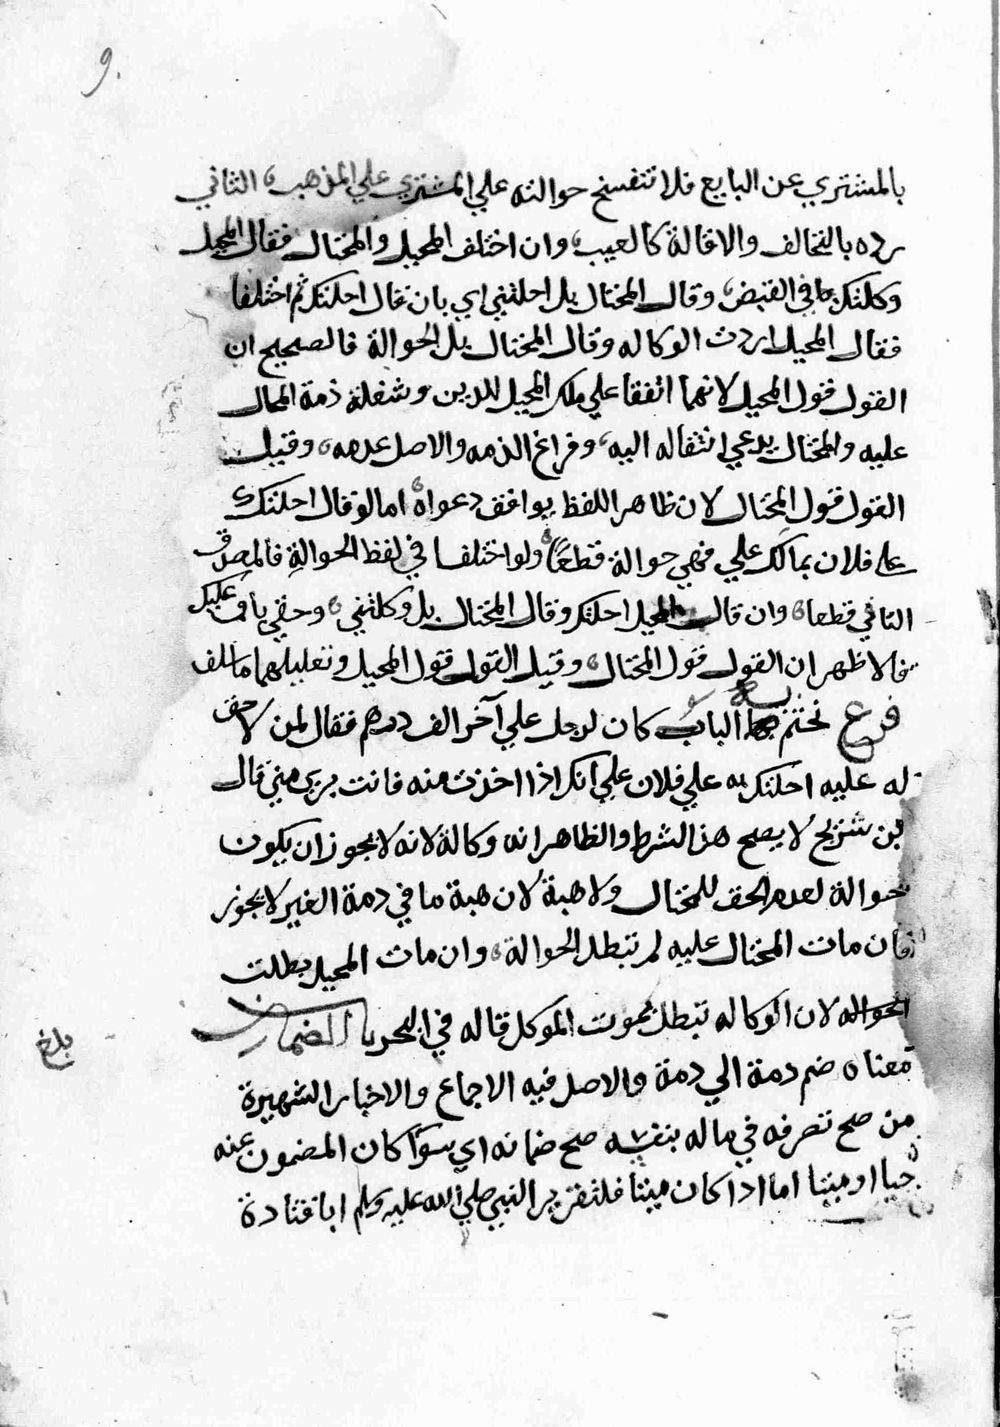 بالمشتري عن البايع فلا تنفسخ حوالته علي المشتري علي المذهب، الثاني
رده بالتحالف والاقالة كالعيب، وان اختلف المحيل والمحتال فقال المحيل
وكلتك في القبض، وقال المحتال بل احلتني اي بان قال احلتك ثم اختلفا
فقال المحيل اردت الوكاله وقال المحتال بل الحوالة فالصحيح ان
القول قول المحيل لانهما اتفقا علي ملك المحيل للدين وشغله ذمة المحال
عليه والمحتال يدعي انتقاله اليه، وفراغ الذمه والاصل عدمه، وقيل
القول قول المحتال لان ظاهر اللفظ يوافق دعواه، اما لو قال احلتك
علي فلان بما لك علي فهي حوالة قطعًا، ولو اختلفا في لفظ الحوالة فالمصدق
النافي قطعا، وان قال المحيل احلتك وقال المحتال بل وكلتني، وحقي باق عليك
فالاظهر ان القول قول المحتال، وقيل القول قول المحيل وتعليلهما ما سلف
فرع نختم به الباب كان لرجل علي آخر الف درهم فقال لمن لا حق
له عليه احلتك به علي فلان علي انك اذا اخذت منه فانت بري مني قال
بن سريج لا يصح هذا الشرط والظاهر انه وكالة لانه لا يجوز ان يكون
حوالة لعدم الحق للمحتال ولا هبة لان هبة ما في دمة الغير لا يجوز
فان مات المحتال عليه لم تبطل الحوالة، وان مات المحيل بطلت
الحواله لان الوكاله تبطل بموت الموكل قاله في البحر باب الضمان
معناه ضم دمة الي دمة والاصل فيه الاجماع والاخبار الشهيرة
من صح تصرفه في ماله بنفسه صح ضمانه اي سوآ كان المضمون عنه
حيا او ميتا اما اذا كان ميتا فلتقرير النبي صلي الله عليه وسلم ابا قتادة
بلغ